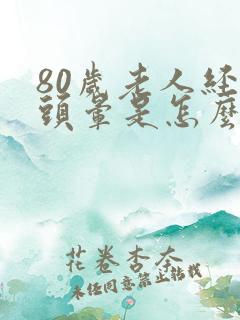 80歲老人經
頭暈是怎麼
花卷杏奈
未經同意禁止轉載